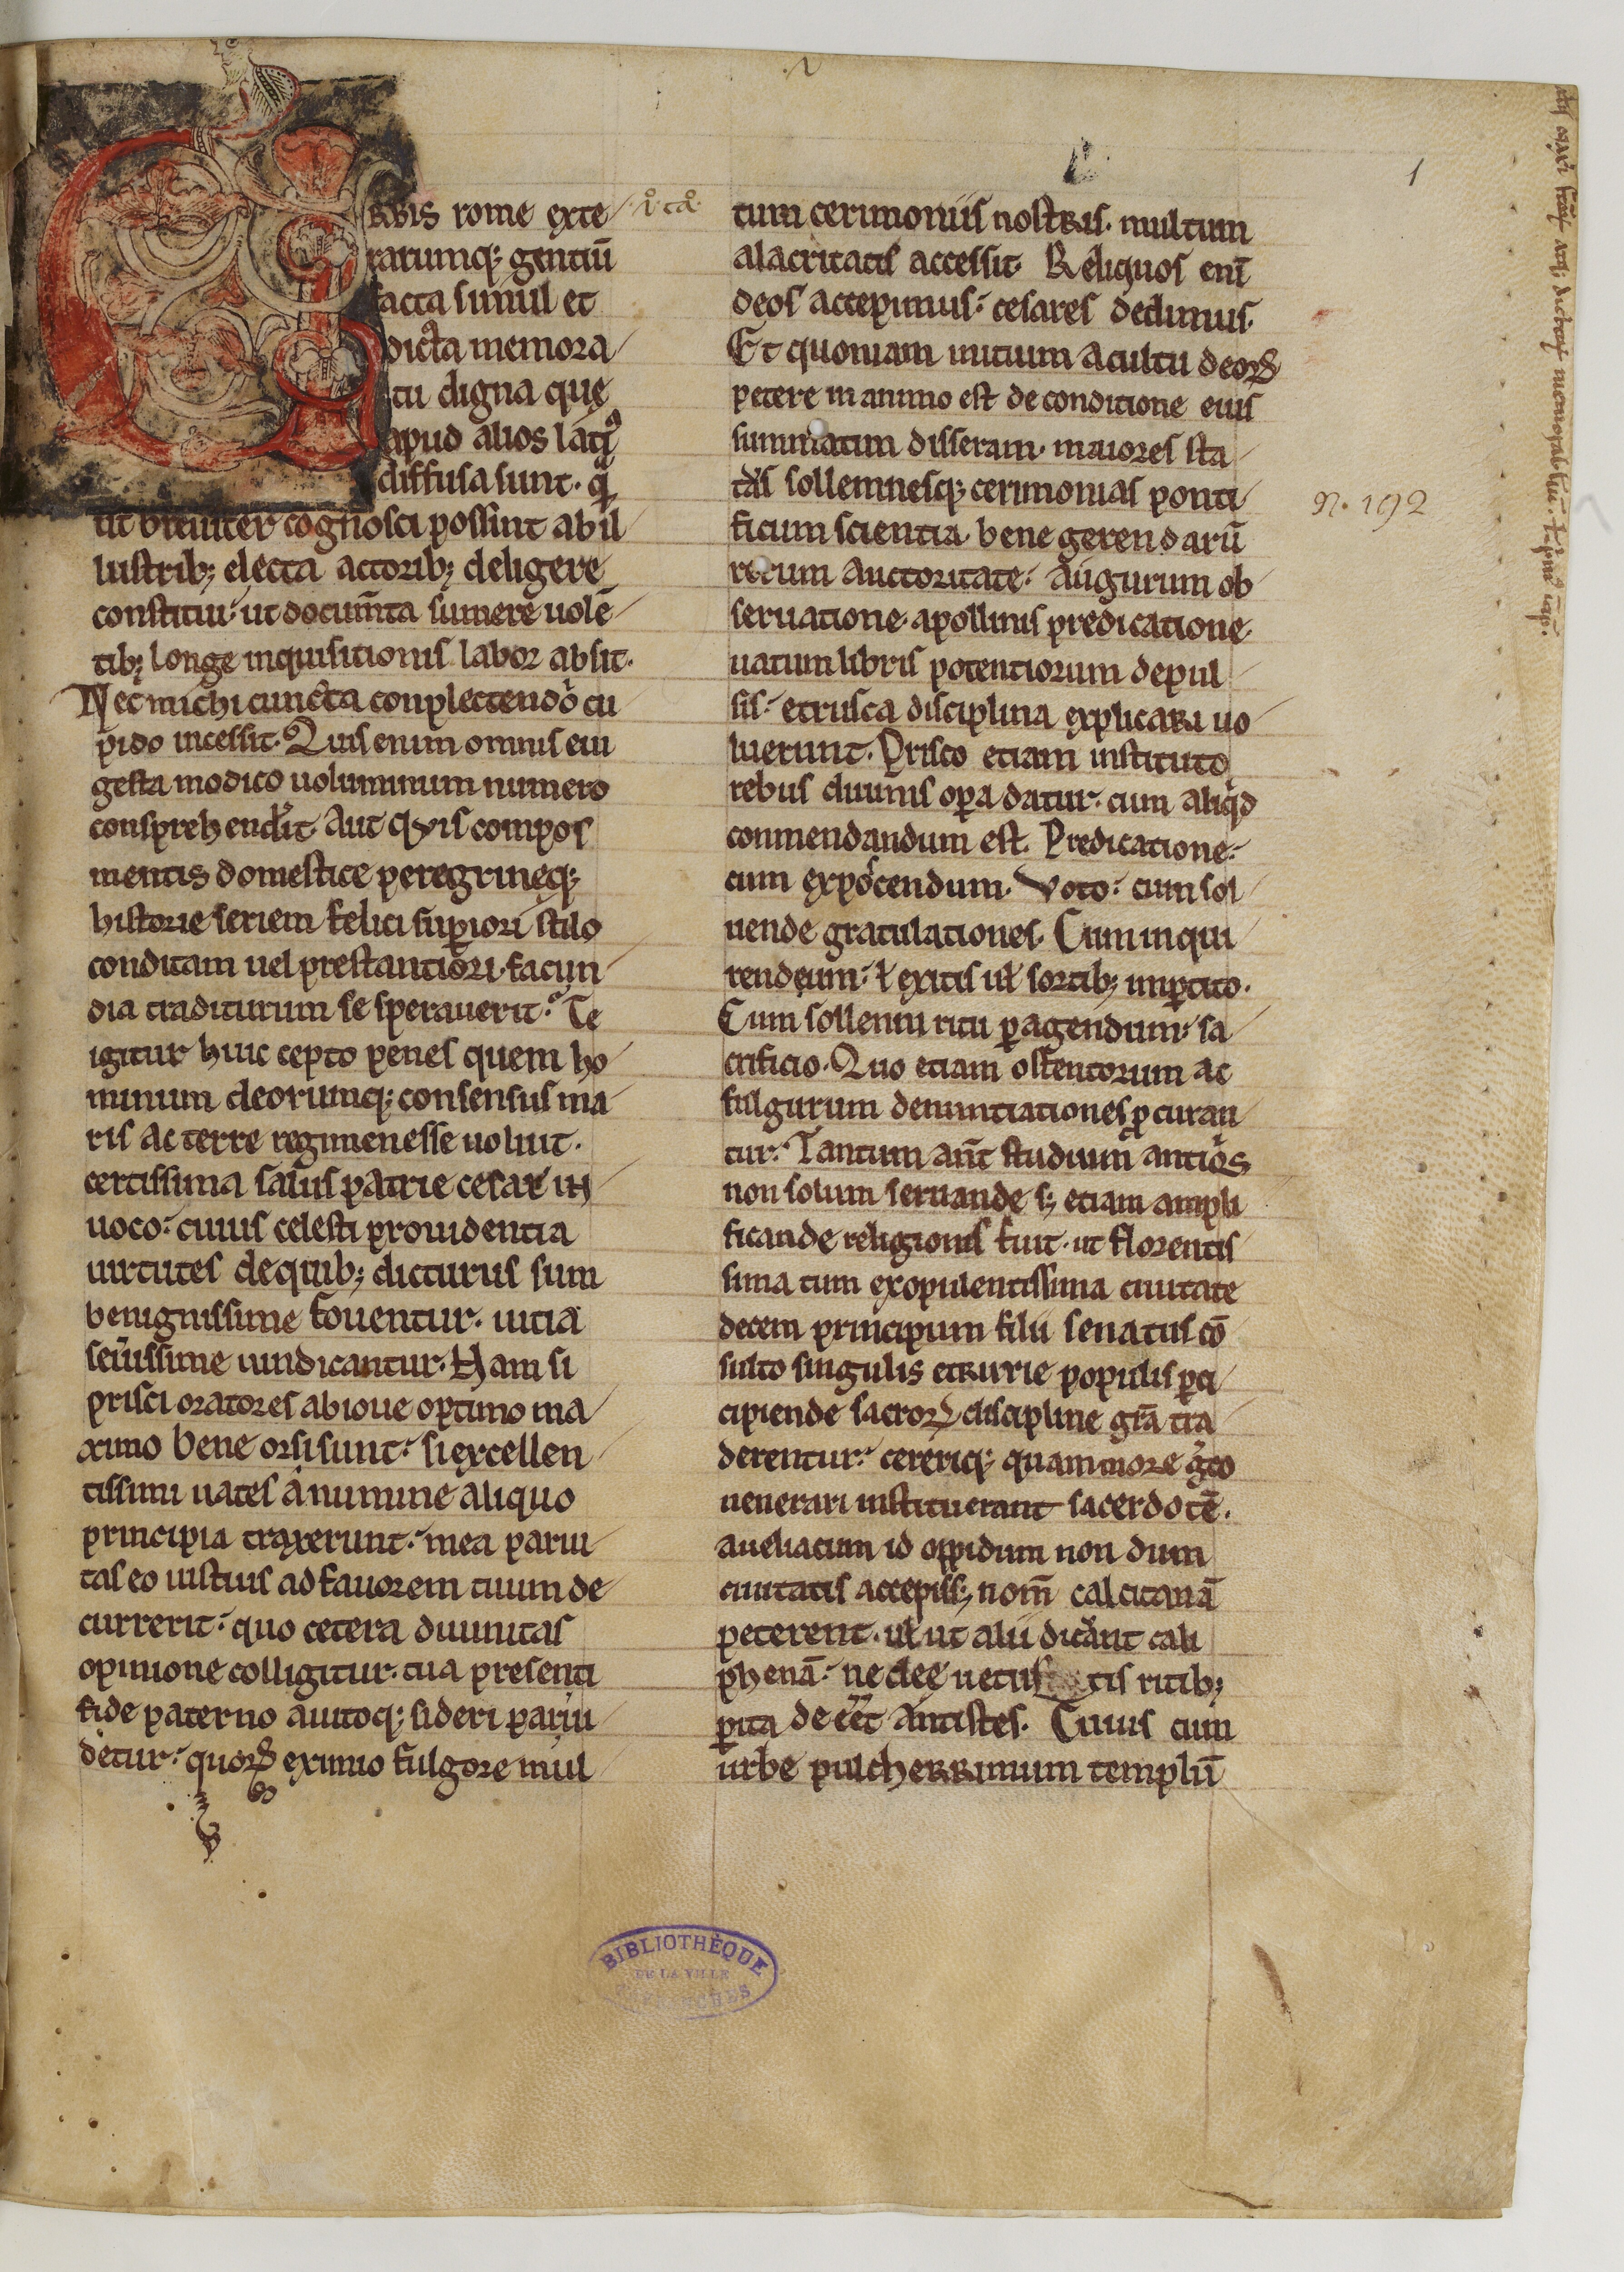 1
URBIS rome exte
rarumq; gentiū
facta simul et
dicta memora
tu digna quę
apud alios latiꝰ
diffusa sunt. q̄
ut breuiter cognosci possint ab il
lustrib; electa actorib; deligere
constitui. ut docum̄ta sumere uolē
tib; longe inquisitionis labor absit.
Nec michi cuncta conplectendo cu
pido incessit. Quis enim omnis eui
gesta modico uoluminum numero
conprehenderit. Aut qvis compos
mentis domestice peregrineq;
historie seriem felici supiori stilo
conditam uel prestantiori facun
dia traditurum se sperauerit. Te
igitur huic cepto penes quem ho
minum deorumq; consensus ma
ris ac terre regimen esse uoluit.
certissima salus patrie cesar in
uoco. cuius celesti prouidentia
uirtutes de quib; dicturus sum
benignissime fouentur. uitia
seuissime uindicantur. Nam si
prisci oratores ab ioue optimo ma
ximo bene orsi sunt. si excellen
tissimi uates a numine aliquo
principia traxerunt. mea parui
tas eo iustius ad fauorem tuum de
currerit. quo cetera diuinitas
opinione colligitur. tua presenti
fide paterno auitoq; sideri par ui
detur. quoꝝ eximio fulgore mul
tum cerimoniis nostris. multum
alacritatis accessit. Reliquos enī
deos accepimus. cesares dedimus.
Et quoniam initium a cultu deoꝝ
petere in animo est de conditione eius
summatim disseram. maiores sta
tas sollemnesq; cerimonias ponti
ficum scientia. bene gerendarū
rerum auctoritate. augurum ob
seruatione. apollinis predicatione.
uatum libris potentiorum depul
sis. etrusca disciplina explicari uo
luerunt. Prisco etiam instituto
rebus diuinis opa datur. cum aliqd
conmendandum est. Predicatione.
cum exposcendum. Voto. cum sol
uende gratulationes. Cum inqui
rendeum. ł exitis uł sortib; inpetito.
Cum sollenni ritu pagendum. sa
crificio. Quo etiam ostentorum ac
fulgurum denuntiationes pcuran
tur. Tantum aut̄ studium antiqs
non solum seruande s; etiam ampli
ficande religionis fuit. ut florentis
sima tum ex opulentissima ciuitate
decem principum filii senatus cō
sulto singulis etrurie populis pci
cipiende sacroꝝ discipline grā tra
derentur. cereriq; quam more gͦco
uenerari instituerant sacerdotē.
a ueliacum id oppidum non dum
ciuitatis accepiss; nom̄ calcitanā
peterent. uł ut alii dicant cali
phenā. ne dee uetus tis ritib;
pita deeēt antistes. Cuius cum
urbe pulcherrimum templū
N. 192
BIBLIOTHÈQUE
DE LA VILLE
D'AVRANCHES